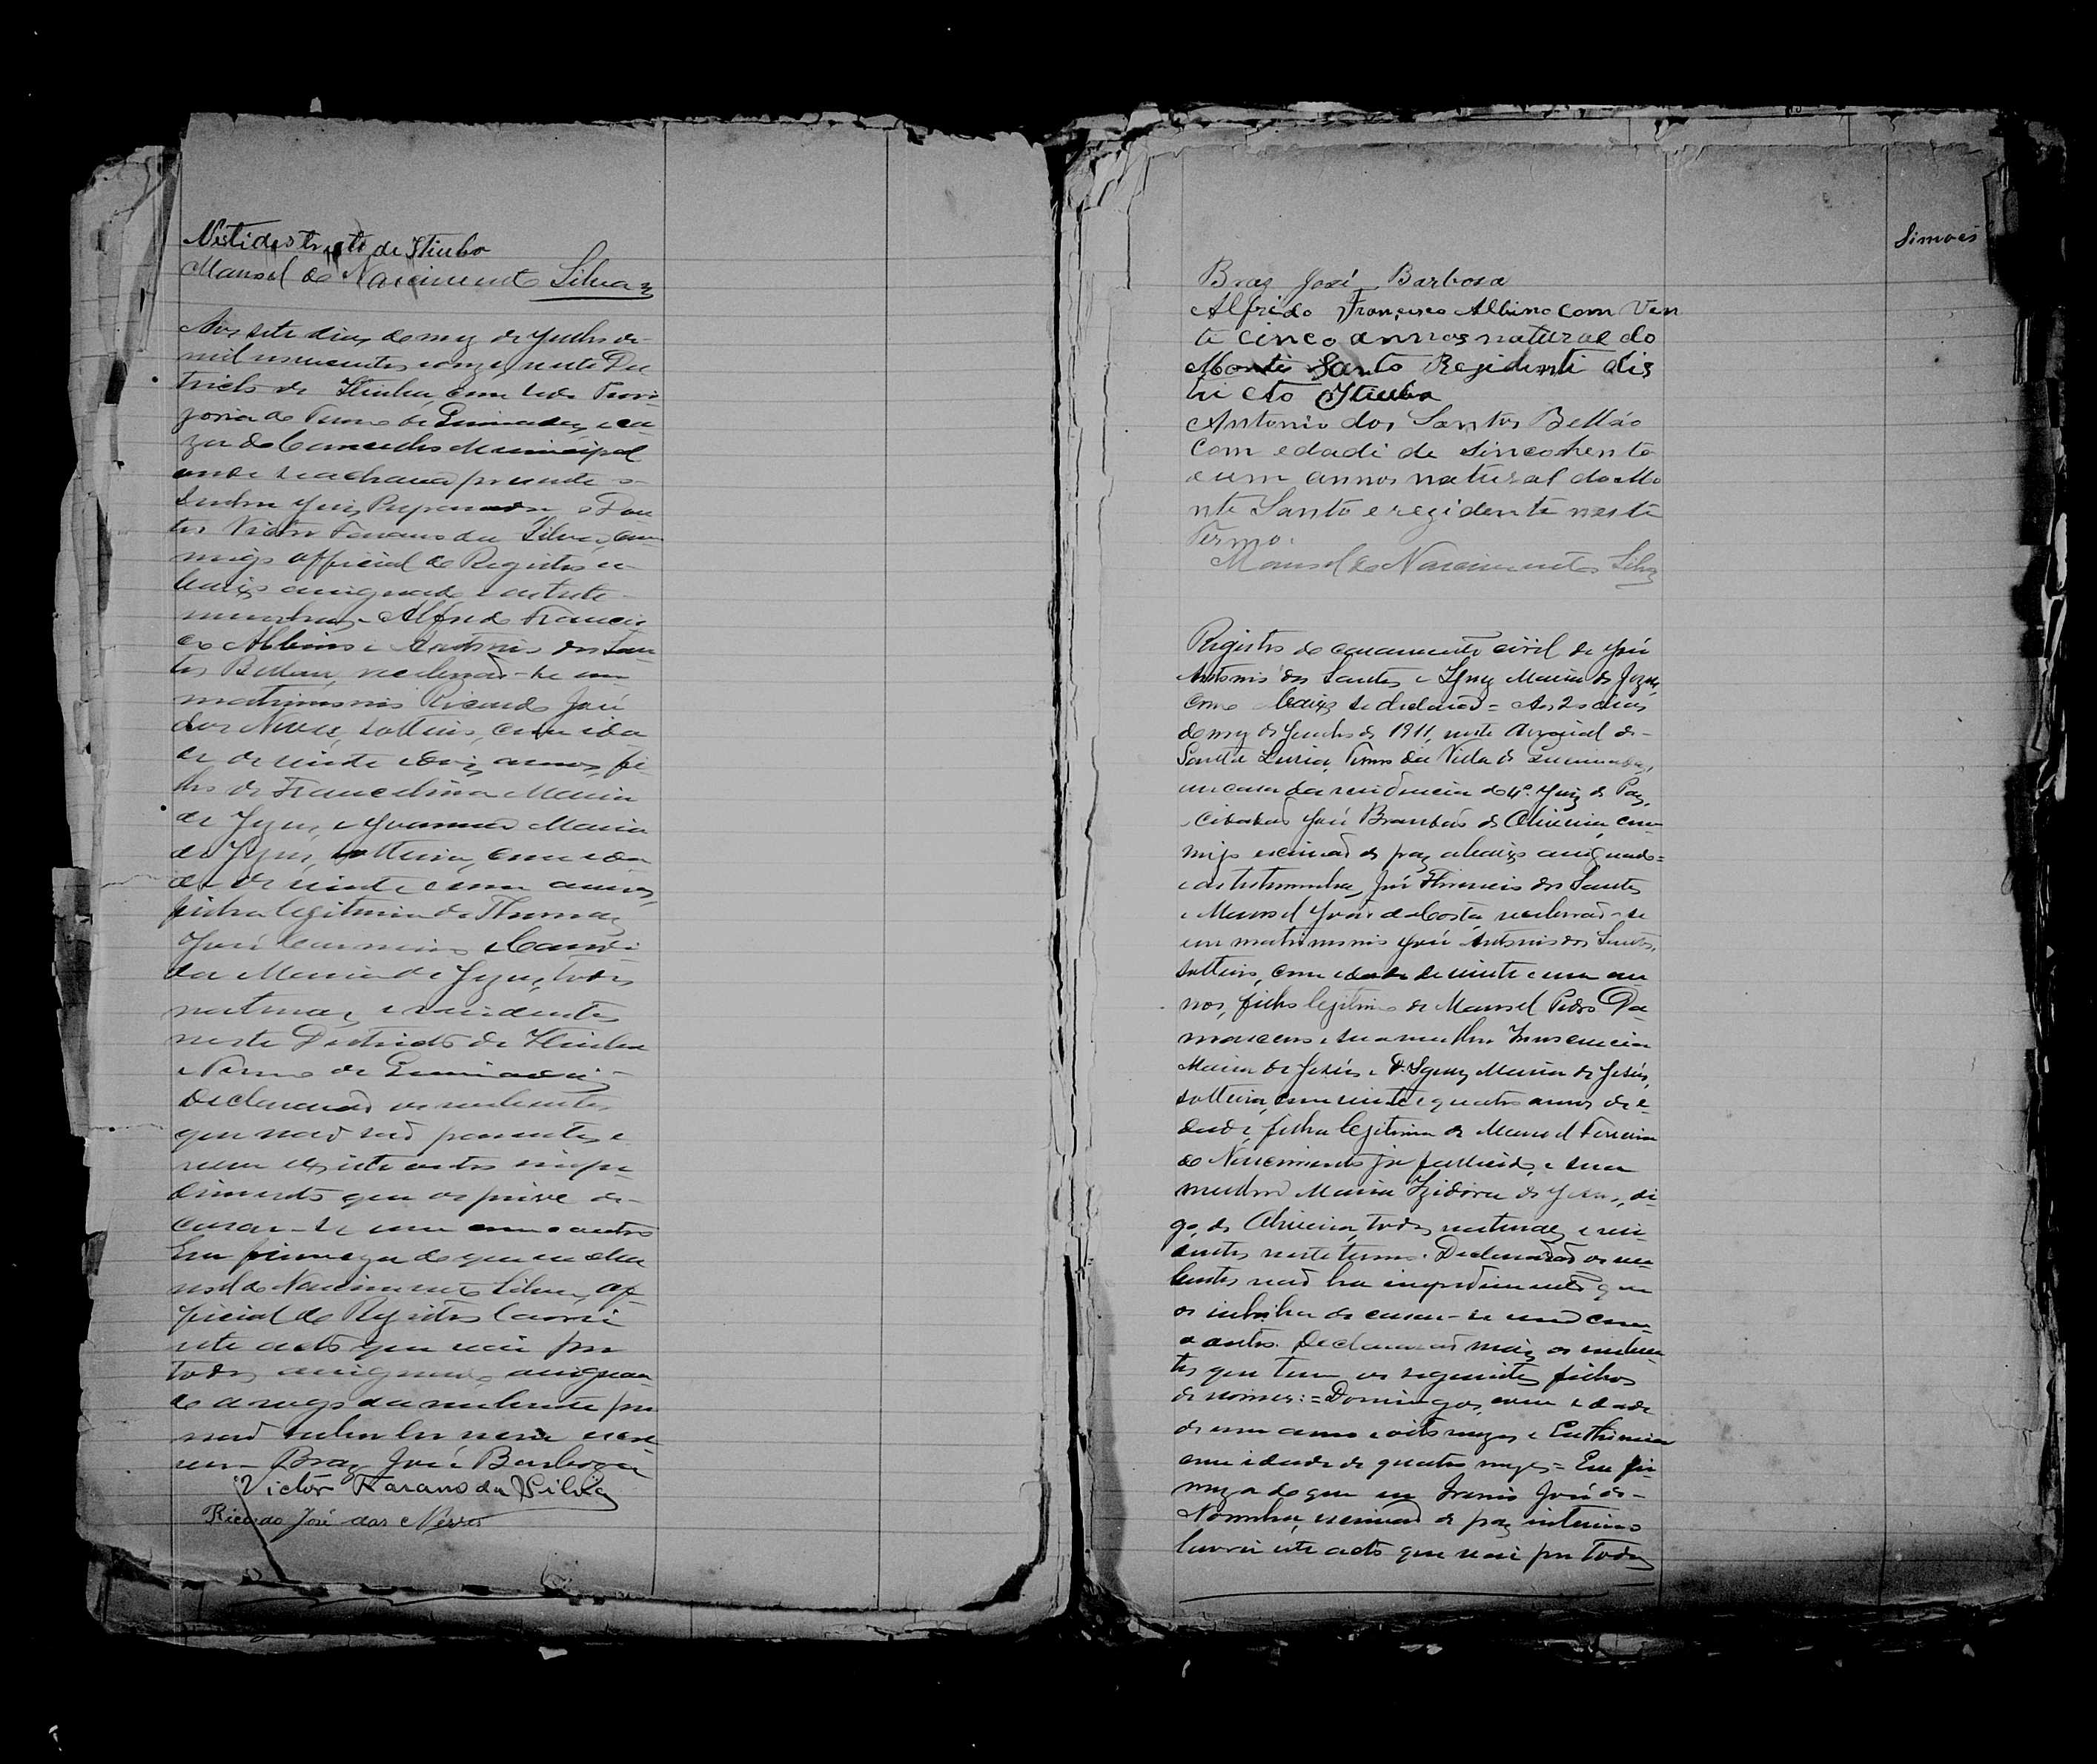 Nestidestricto de Itiuba
Manoel do Nascimento Silva
Aos sete dias do mez de Junho de
mil novecentos e onze, neste Dis
tricto de Itiuba, com sede Provi
zoria do Termo de Queimadas, e ca
za do Concelho Municipal
onde se achava presente o
Senhor Juiz Preparador, o Dou
tor Victor Farano da Silva, com
migo official do Registro a
baixo assignado e as teste
munhas Alfredo Francis
co Albino e Antonio dos San
tos Bellau, receberão-se em
matrimonio Ricardo José
das Neves, solteiro, com ida
de de vinte e dois annos, fi
lho de Francelina Maria
de Jezus, e Joanna Maria
de Jezus, solteira, com eda
de de vinte e um annos,
filha legitima de Thomaz
José e Candi
da Maria de Jezus, todos
naturaes e residentes
neste Destricto de Itiuba
e Termo de Queimadas
Declararão os nubentes
que não são parentes, e
nem existe outro impe
dimento que os prive de
casar-se um com o outro
Em firmeza do que eu Ma
noel do Nascimento Silva, of
ficial do Registro lavrei
este acto que vai por
todos assignado, assignan
do a rogo da nubente por
não saber ler nem escre
ver Braz José Barboza
Victor Farano da Silva
Ricardo José das Neves
Simões
Braz José Barbosa
Alfrido Francisco Albino com Vin
ti cinco annos natural do
Monti Santo Rezidenti dis
tri cto Itiuba
Antonio dos Santos Bellão
Com edadi de Sincohenta
e um annos natural do Mo
nte Santo e rezidente neste
Termo.
Manoel do Nascimento Silva
Registro do casamento civil de José
Antonio dos Santos e Ignez Maria de Jezus,
como abaixo se declarão = Aos 20 dias
do mez de Junho de 1911, neste Arraial de
Santa Luzia, Termo da Villa de Queimadas,
em casa da residencia do 4º. Juiz de Paz,
o Cidadão José Brandão de Oliveira, com
migo escrivão de paz abaixo assignado =
e as testemunhas, José dos Santos
e Manoel José da Costa, receberão-se
em matrimonio José Antonio dos Santos,
solteiro, com edade de vinte e um an
nos, filho legitimo de Manoel Pedro Da
masceno e sua mulher Innocencia
Maria de Jesús e D. Ignez Maria de Jesús,
solteira, com vinte e quatro annos de e-
dade, filha legitima de Manoel Ferreira
do Nascimento já fallecido, e sua
mulher Maria Izidora de Jesus, di
go, de Oliveira, todos naturaes e resi
dentes neste termo. Declararão os nu
bentes não ha impedimento que
os inhiba de casar-se um com
o outro. Declararão mais os nuben
tes que tem os seguintes filhos
de nomes: = Domingos, com edade
de um anno e oito mezes e Euthimia
com idade de quatro mezes = Em fir
meza do que eu José de
Noronha, escrivão de paz interino
lavrei este acto que vai por todos